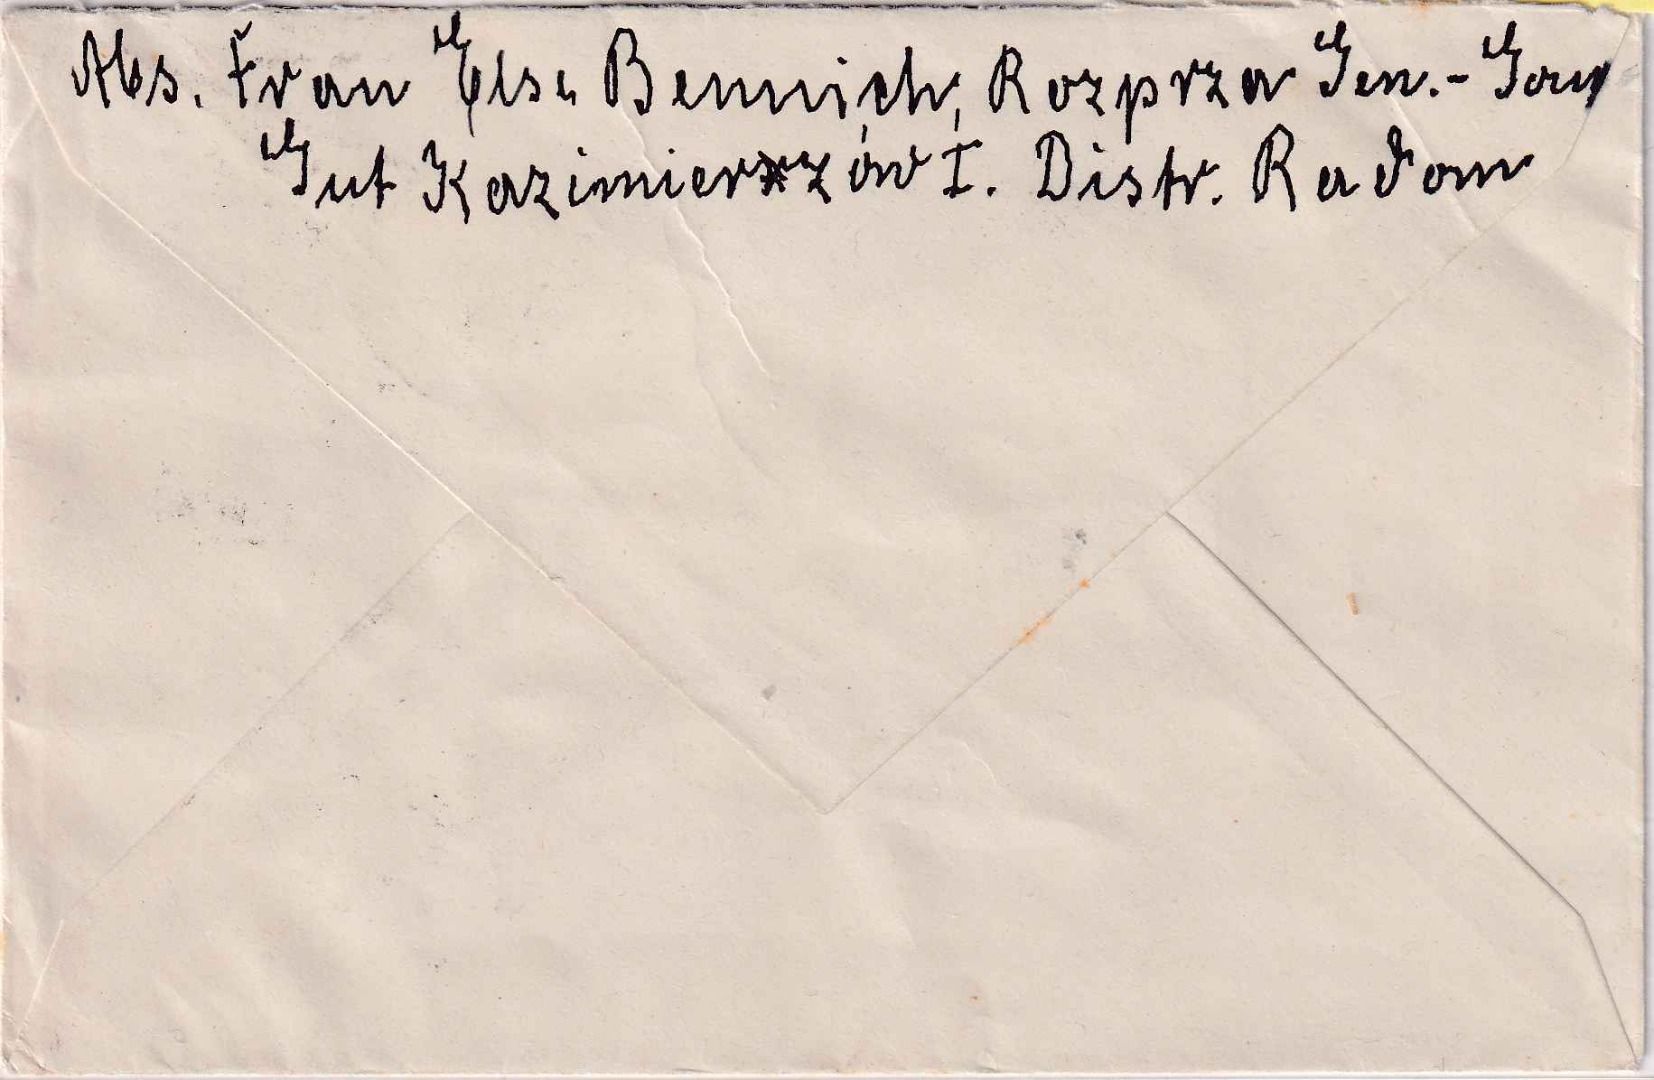 Abs. Frau Else Bennich, Rozprza Gen.-Gouv
Gut Kazimierzów I. Distr. Radom